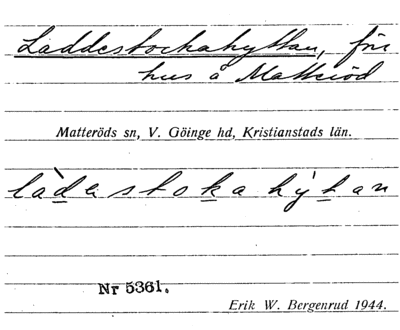 Laddestockahyttan, för
hus å Matteröd
Matteröds sn, V. Göinge hd, Kristianstads län.
làdestokahỳtan
Nr 5361.
Erik W. Bergenrud 1944.